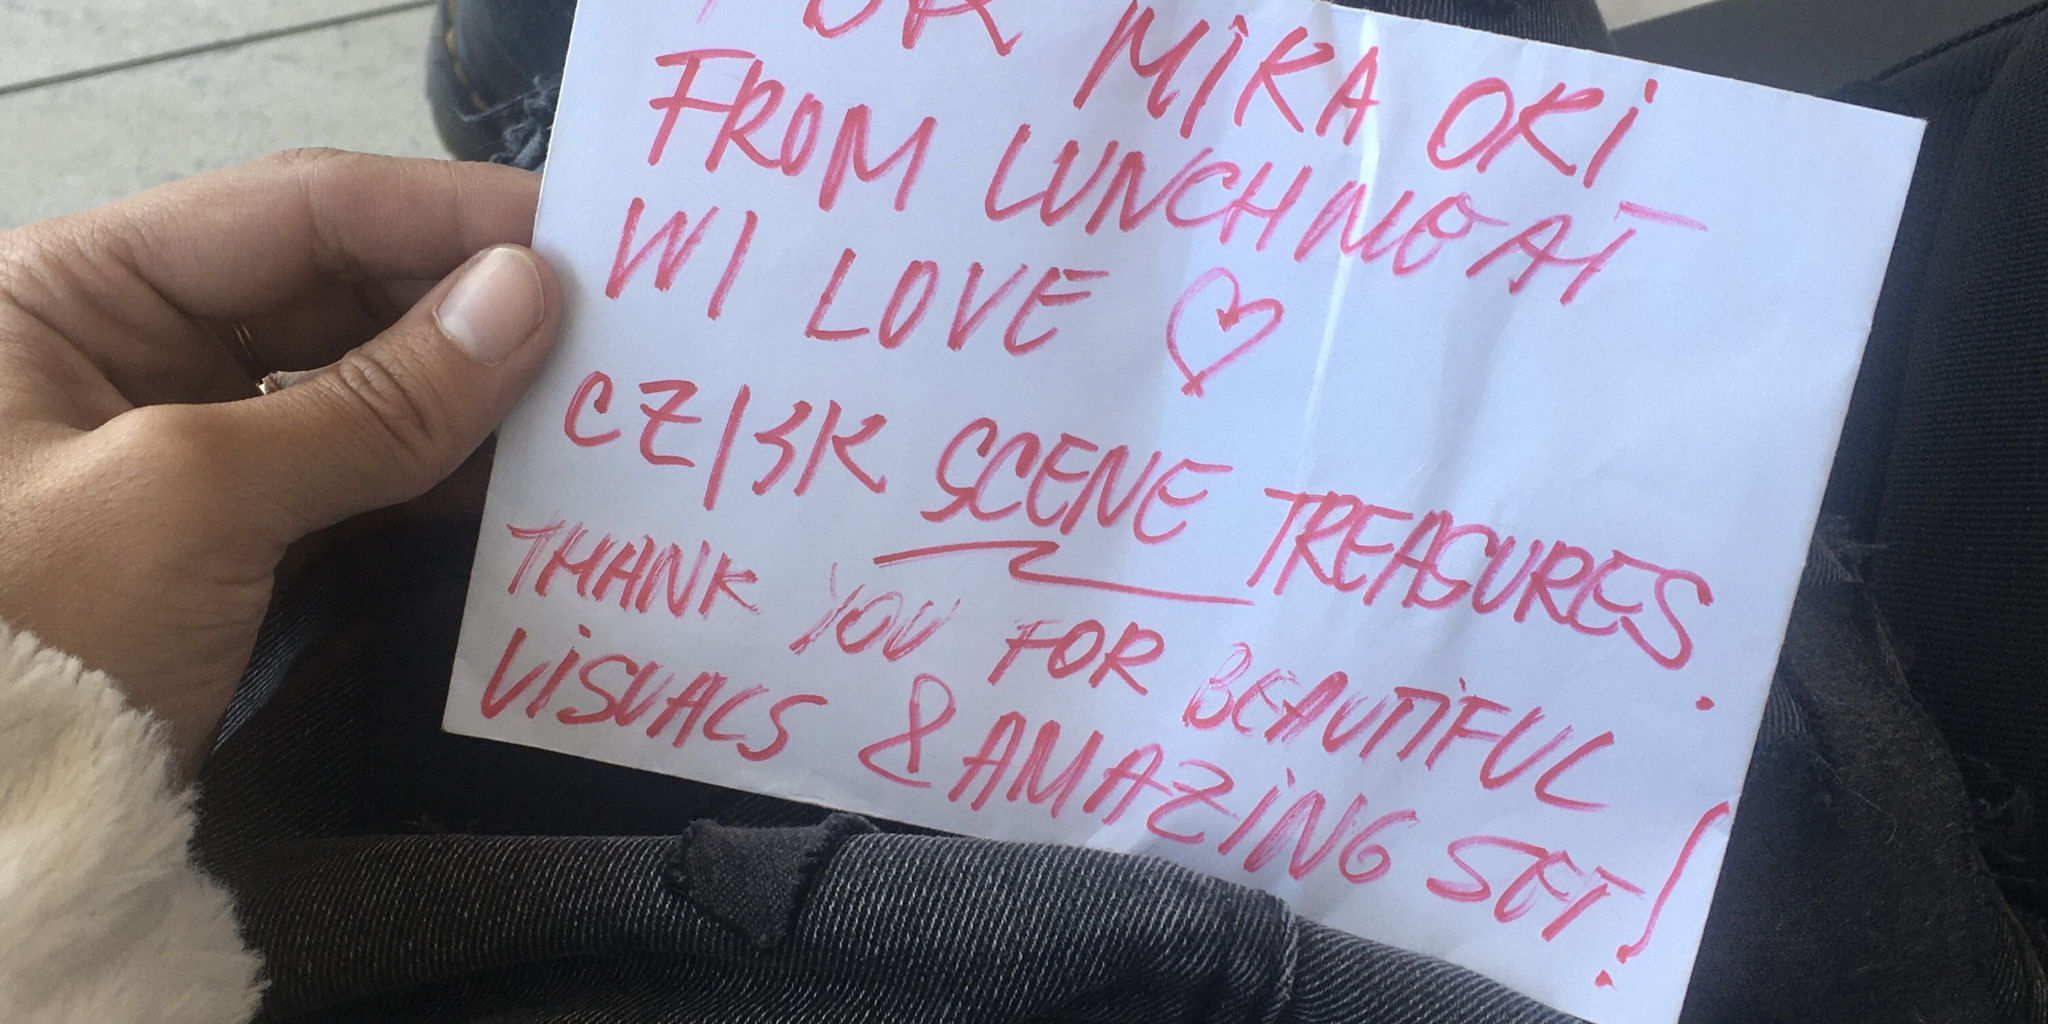 FOR MIKA ORI
FROM LUNCHMEAT
WI LOVE ♡
CZ/SK SCENE TREASURES.
THANK YOU FOR BEAUTIFUL
VISUALS & AMAZING SET!